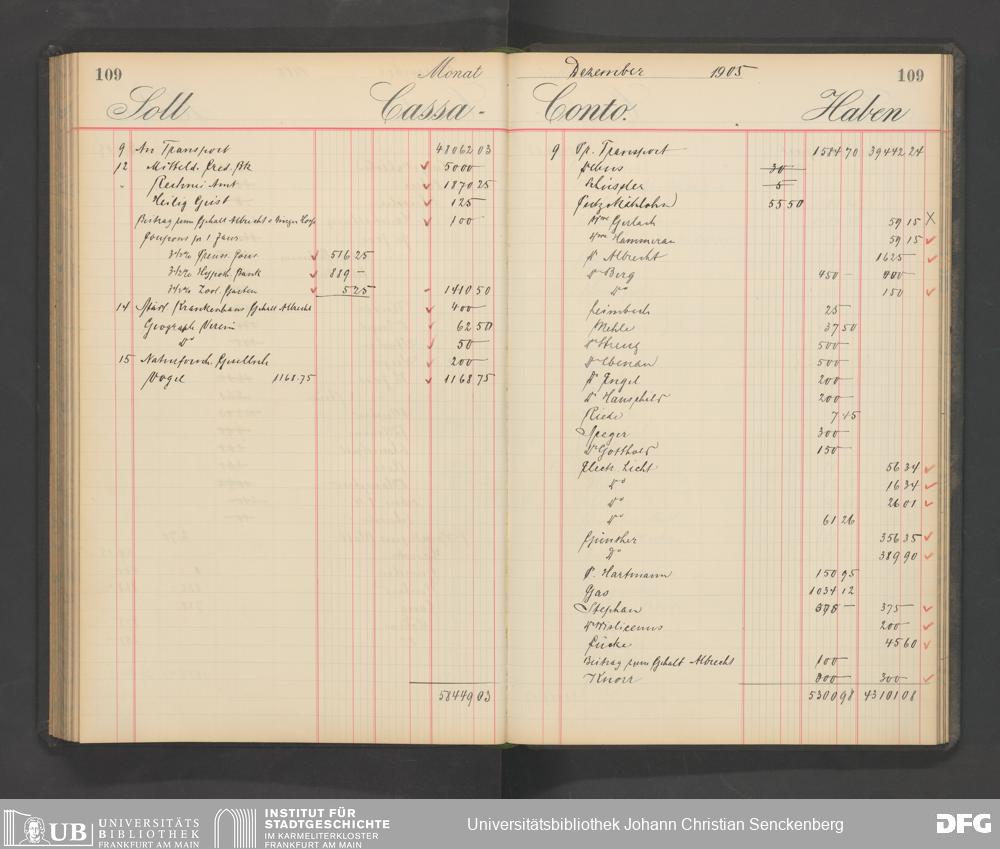 109 Monat
Soll Cassa-
9 An Transport 48062 03
12 Mitteld. Cred. Bk 5000
" Rechnei Amt 1870 25
Heilig Geist 125
Beitrag zum Gehalt Albrecht 100
Coupons pr 1 Janr
3½% Preuss. 516 25
3½% Hypoth. Bank 889 -
3½% Zool. Garten 525 1410 50
14 Städt Krankenhaus Gehalt Albrecht 400
Geograph Verein 62 50
Do 50
15 Naturforsch. Gesellsch 200
Vogel 1168.75 1168 75
58449 03
Dezember 1905 109
Conto. Haben
9 Pr. Transport 1584 70 39442 24
30
5
55 50
Wwe Gerlach 59 15
Wwe Hammeran 59 15
Dr Albrecht 1625
Dr Berg 450 -
Do 150
Leimbach 25
Mehle 37 50
Dr Streng 500
500
Dr Engel 200
200
7 45
300
Dr Gotthold 150
Electr. Licht 56 34
Do 16 34
Do 26 01
Do 61 26
Günther 356 35
Do 389 90
P. Hartmann 150 95
Gas 1034 12
Stephan 375
Dr Wislicenus 200
Lücke 45 60
Beitrag zum Gehalt Albrecht 100
Knorr 300 300
5300 98 43101 08
UB UNIVERSITÄTS
BIBLIOTHEK
FRANKFURT AM MAIN
INSTITUT FÜR
STADTGESCHICHTE
IM KARMELITERKLOSTER
FRANKFURT AM MAIN
Universitätsbibliothek Johann Christian Senckenberg
DFG